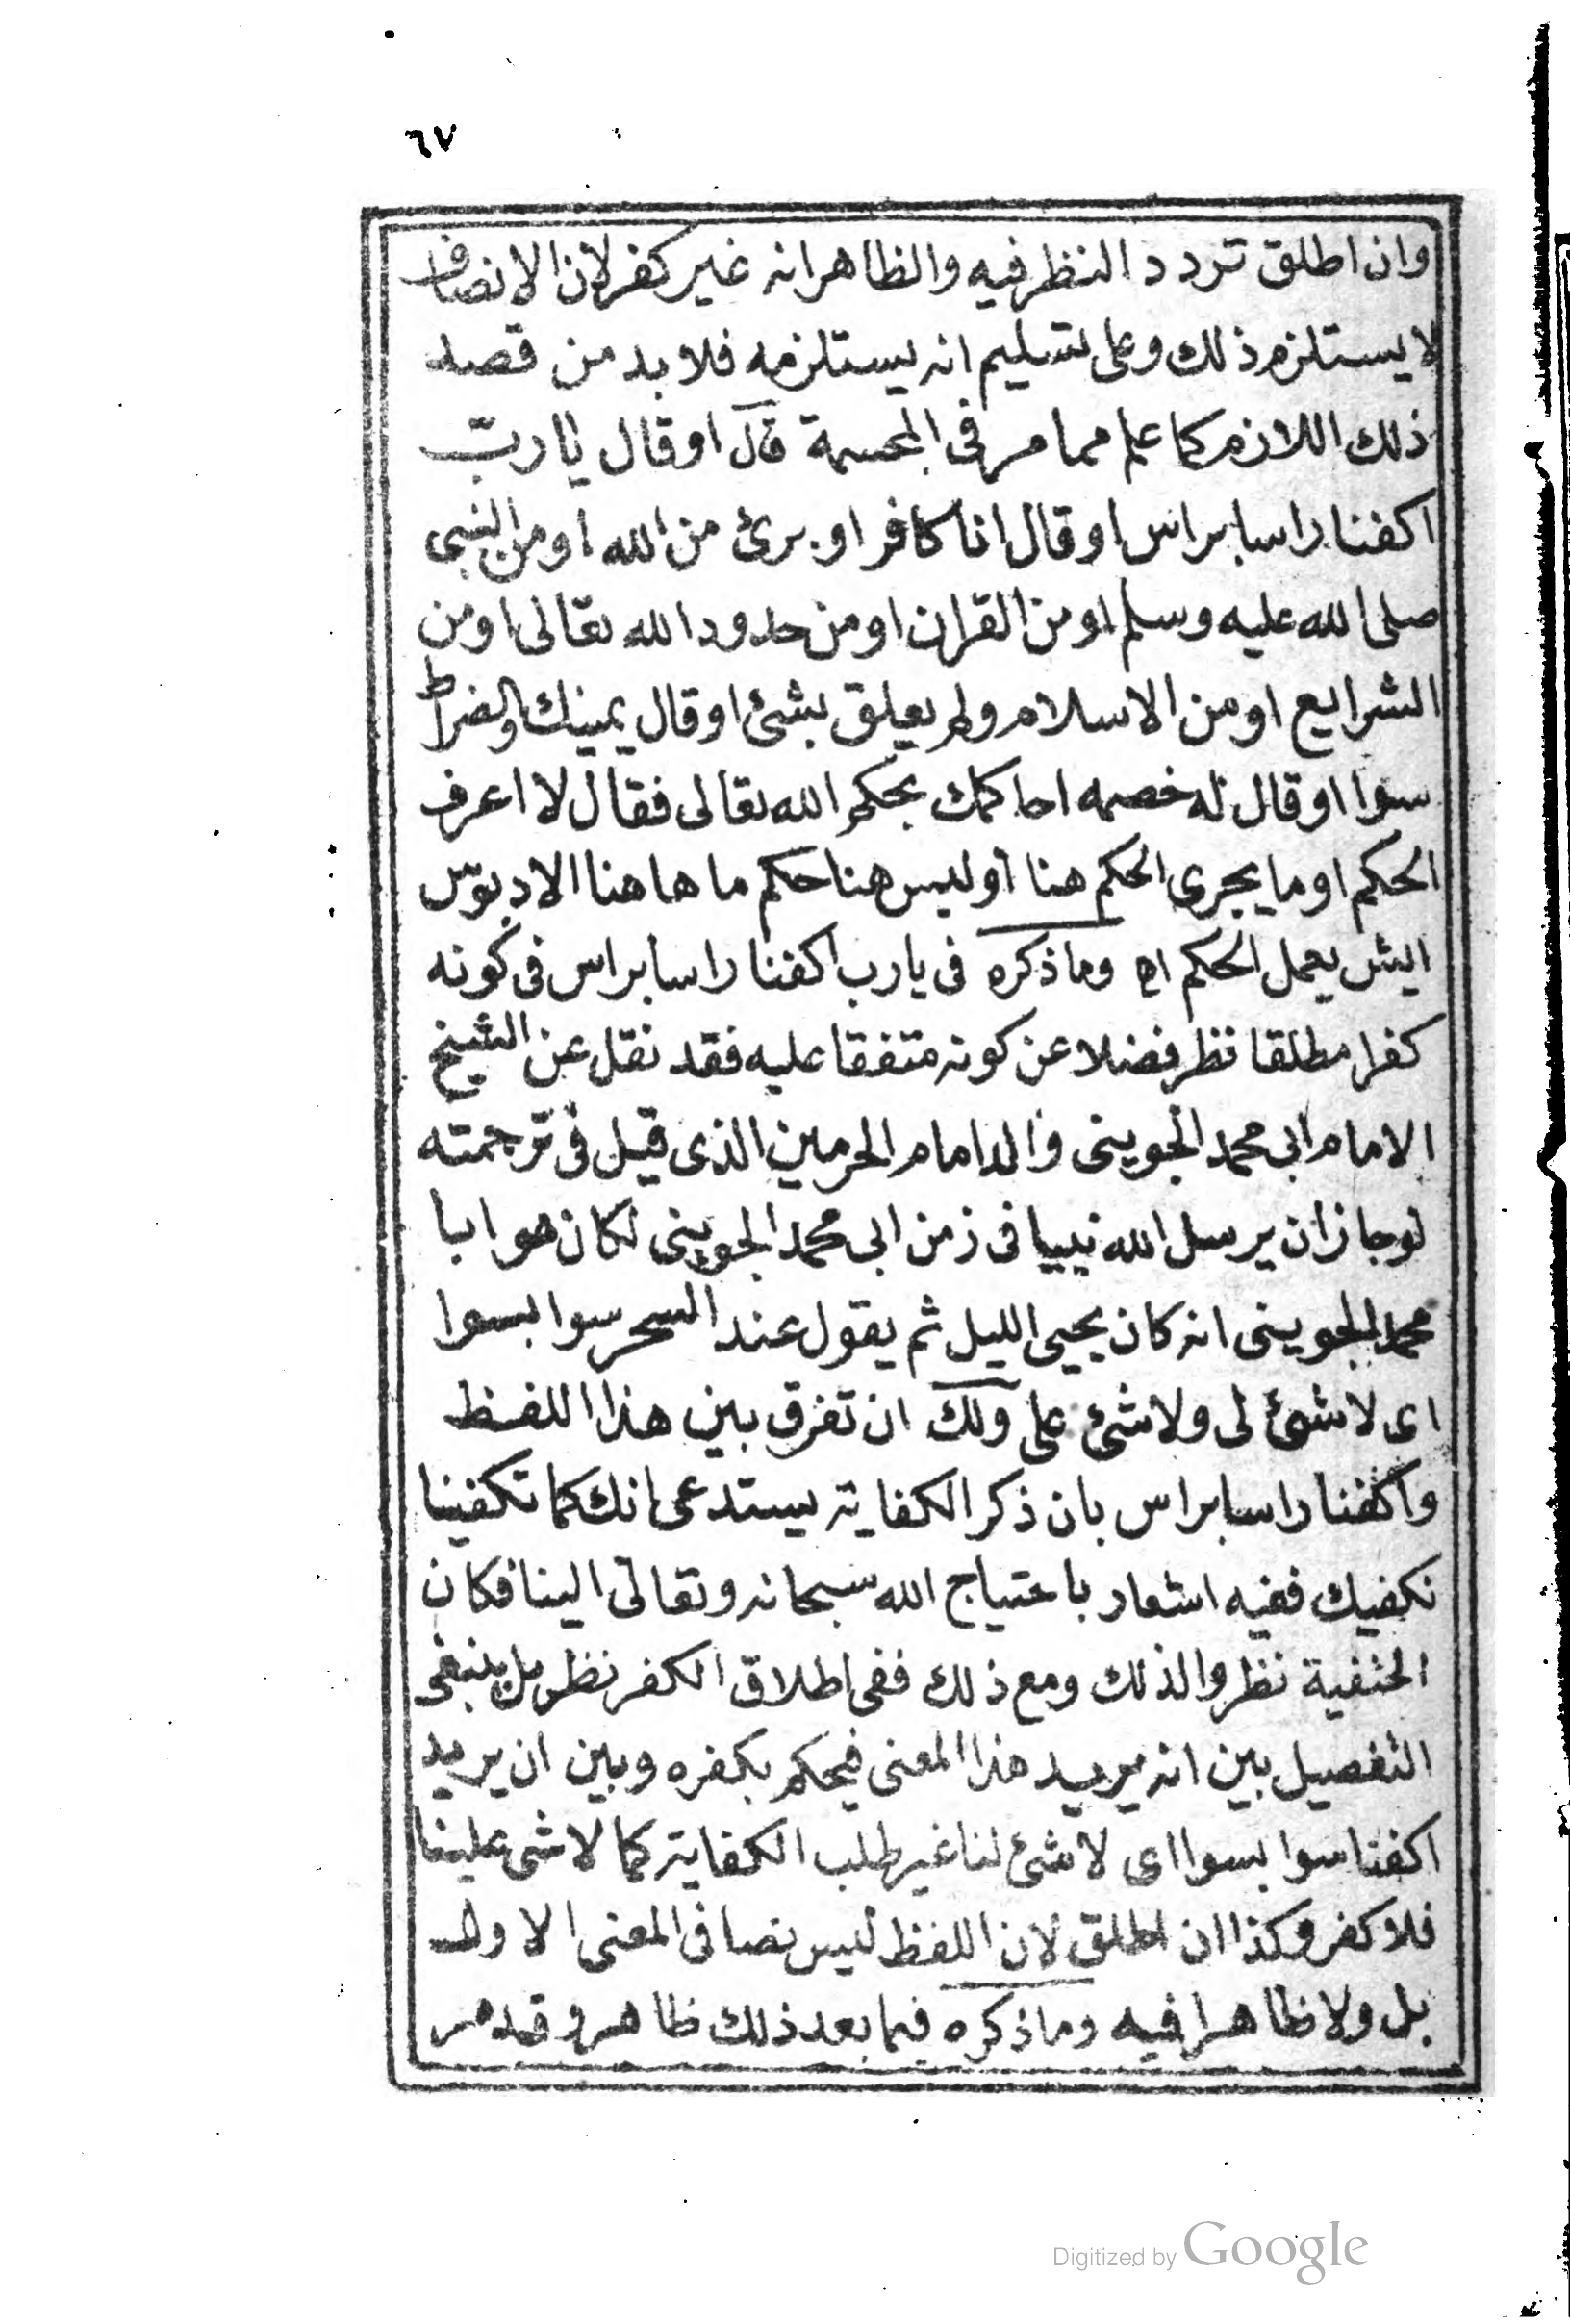 ٦٧
وان اطلق تردد النظر فيه والظاهر انه غير كفر لان الانصاف
لا يستلزم ذلك وعلى تسليم انه يستلزمه فلا بد من قصد
ذلك اللازم كما علم مما مر فى المجسمة قال او قال يا رب
اكفنا راسا براس او قال انا كافر او برئ من الله او من النبى
صلى الله عليه وسلم او من القران او من حدود الله تعالى او من
الشرايع او من الاسلام ولم يعلق بشئ او قال يمينك والضراط
سوا او قال له خصمه احاكمك بحكم الله تعالى فقال لا اعرف
الحكم او ما يجرى الحكم هنا او ليس هنا حكم ما هاهنا الا دبوس
ايش يعمل الحكم اه وما ذكره فى يا رب اكفنا راسا براس فى كونه
كفرا مطلقا نظر فضلا عن كونه متفقا عليه فقد نقل عن الشيخ
الامام ابى محمد الجوينى والد امام الحرمين الذى قيل فى ترجمته
لو جاز ان يرسل الله نبيا فى زمن ابى محمد الجوينى لكان هو ابا
محمد الجوينى انه كان يحيى الليل ثم يقول عند السحر سوا بسوا
اى لا شئ لى ولا شئ على ولك ان تفرق بين هذا اللفظ
واكفنا راسا براس بان ذكر الكفاية يستدعى انك كما تكفينا
نكفيك ففيه اشعار باحتياج الله سبحانه وتعالى الينا فكان
الحنفية نظروا لذلك ومع ذلك ففى اطلاق الكفر نظر بل ينبغى
التفصيل بين انه يريد هذا المعنى فيحكم بكفره وبين ان يريد
اكفنا سوا بسوا اى لا شئ لنا غير طلب الكفاية كما لا شى علينا
فلا كفر وكذا ان اطلق لان اللفظ ليس نصا فى المعنى الاول
بل ولا ظاهرا فيه وما ذكره فيما بعد ذلك ظاهر وقد مر
Digitized by Google